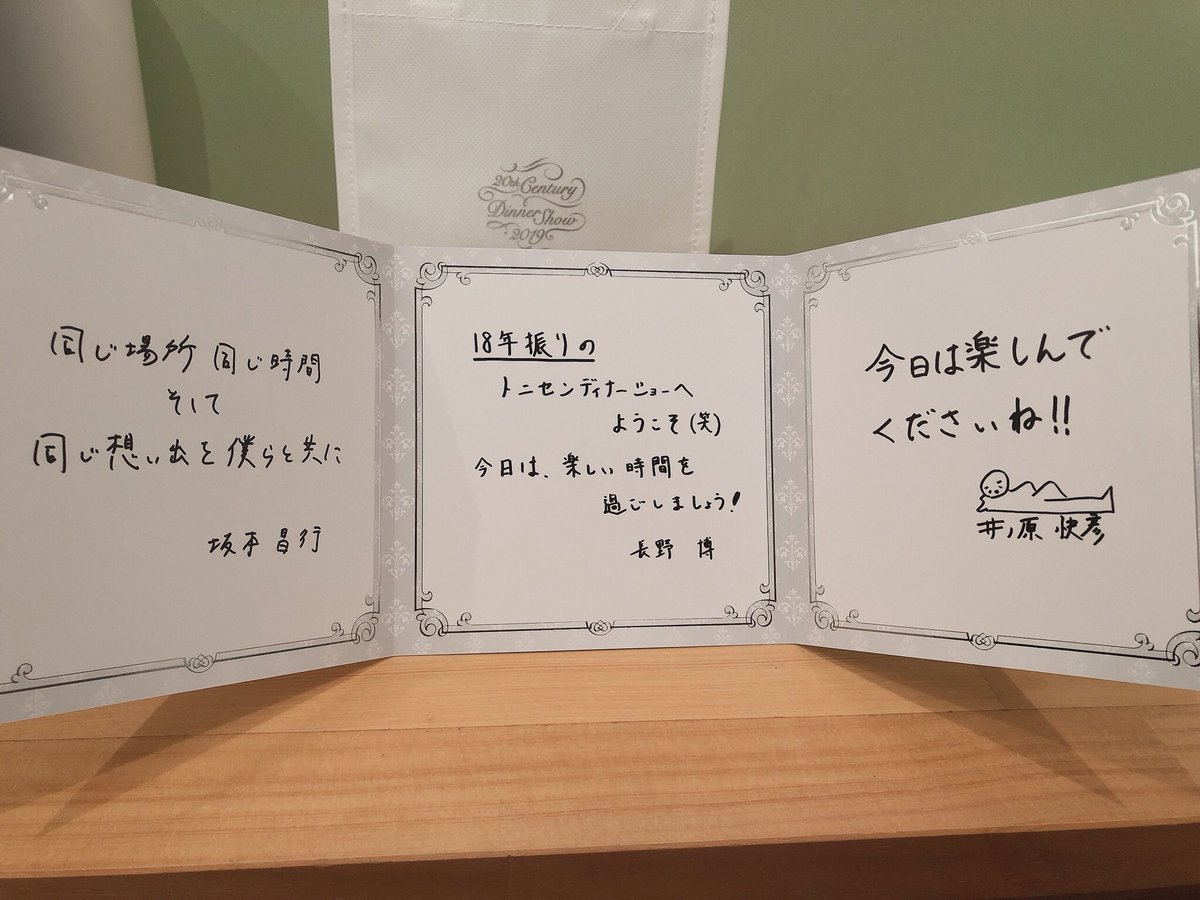 20th Century
Dinner Show
2019
同じ場所 同じ時間
そして
同じ想い出を僕らと共に
坂本昌行
18年振りの
トニセンディナーショーへ
ようこそ(笑)
今日は、楽しい時間を
過ごしましょう!
長野 博
今日は楽しんで
くださいね!!
井ノ原 快彦